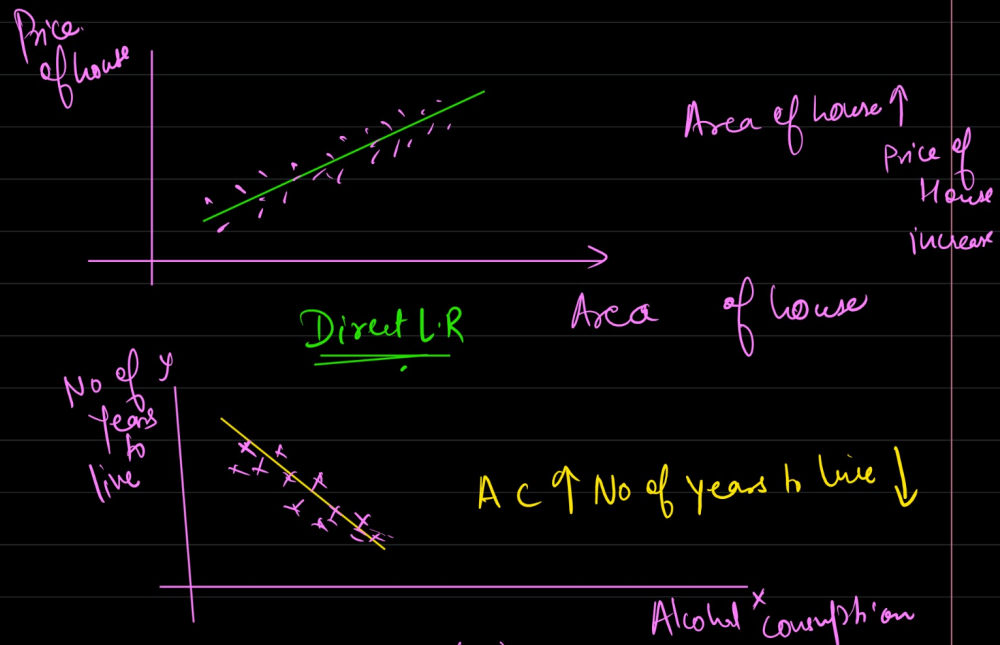 Price
of house
Area of house ↑
Price of
House
increase
Area of house
Direct L.R
No of y
years
to
live
A C ↑ No of years to live ↓
x
Alcohol consumption